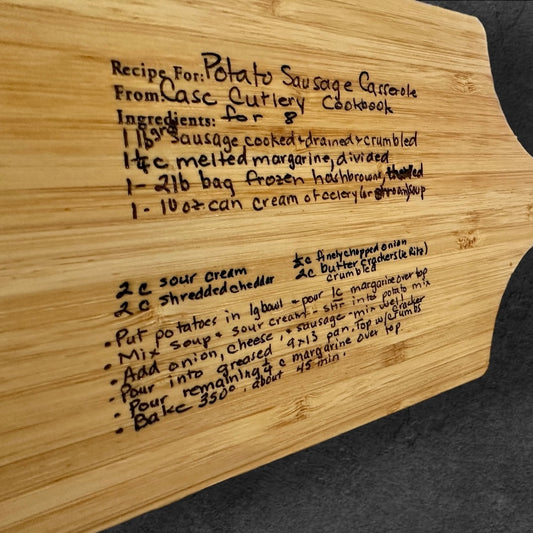 Recipe For: Potato Sausage Casserole
From: Case Cutlery Cookbook
Ingredients: for 8
1 lb grd sausage cooked & drained & crumbled
1 ¼ c melted margarine, divided
1 - 2lb bag frozen hashbrowns, thawed
1 - 10 oz can cream of celery (or shroom) soup
2 c sour cream
2 c shredded cheddar
½ c finely chopped onion
2 c butter crackers (ie Ritz)
crumbled
• Put potatoes in lg bowl - pour 1c margarine over top
• Mix soup & sour cream - stir into potato mix
• Add onion, cheese, & sausage - mix well
• Pour into greased 9x13 pan. Top w/ cracker crumbs
• Pour remaining ¼ c margarine over top.
• Bake 350°, about 45 min.